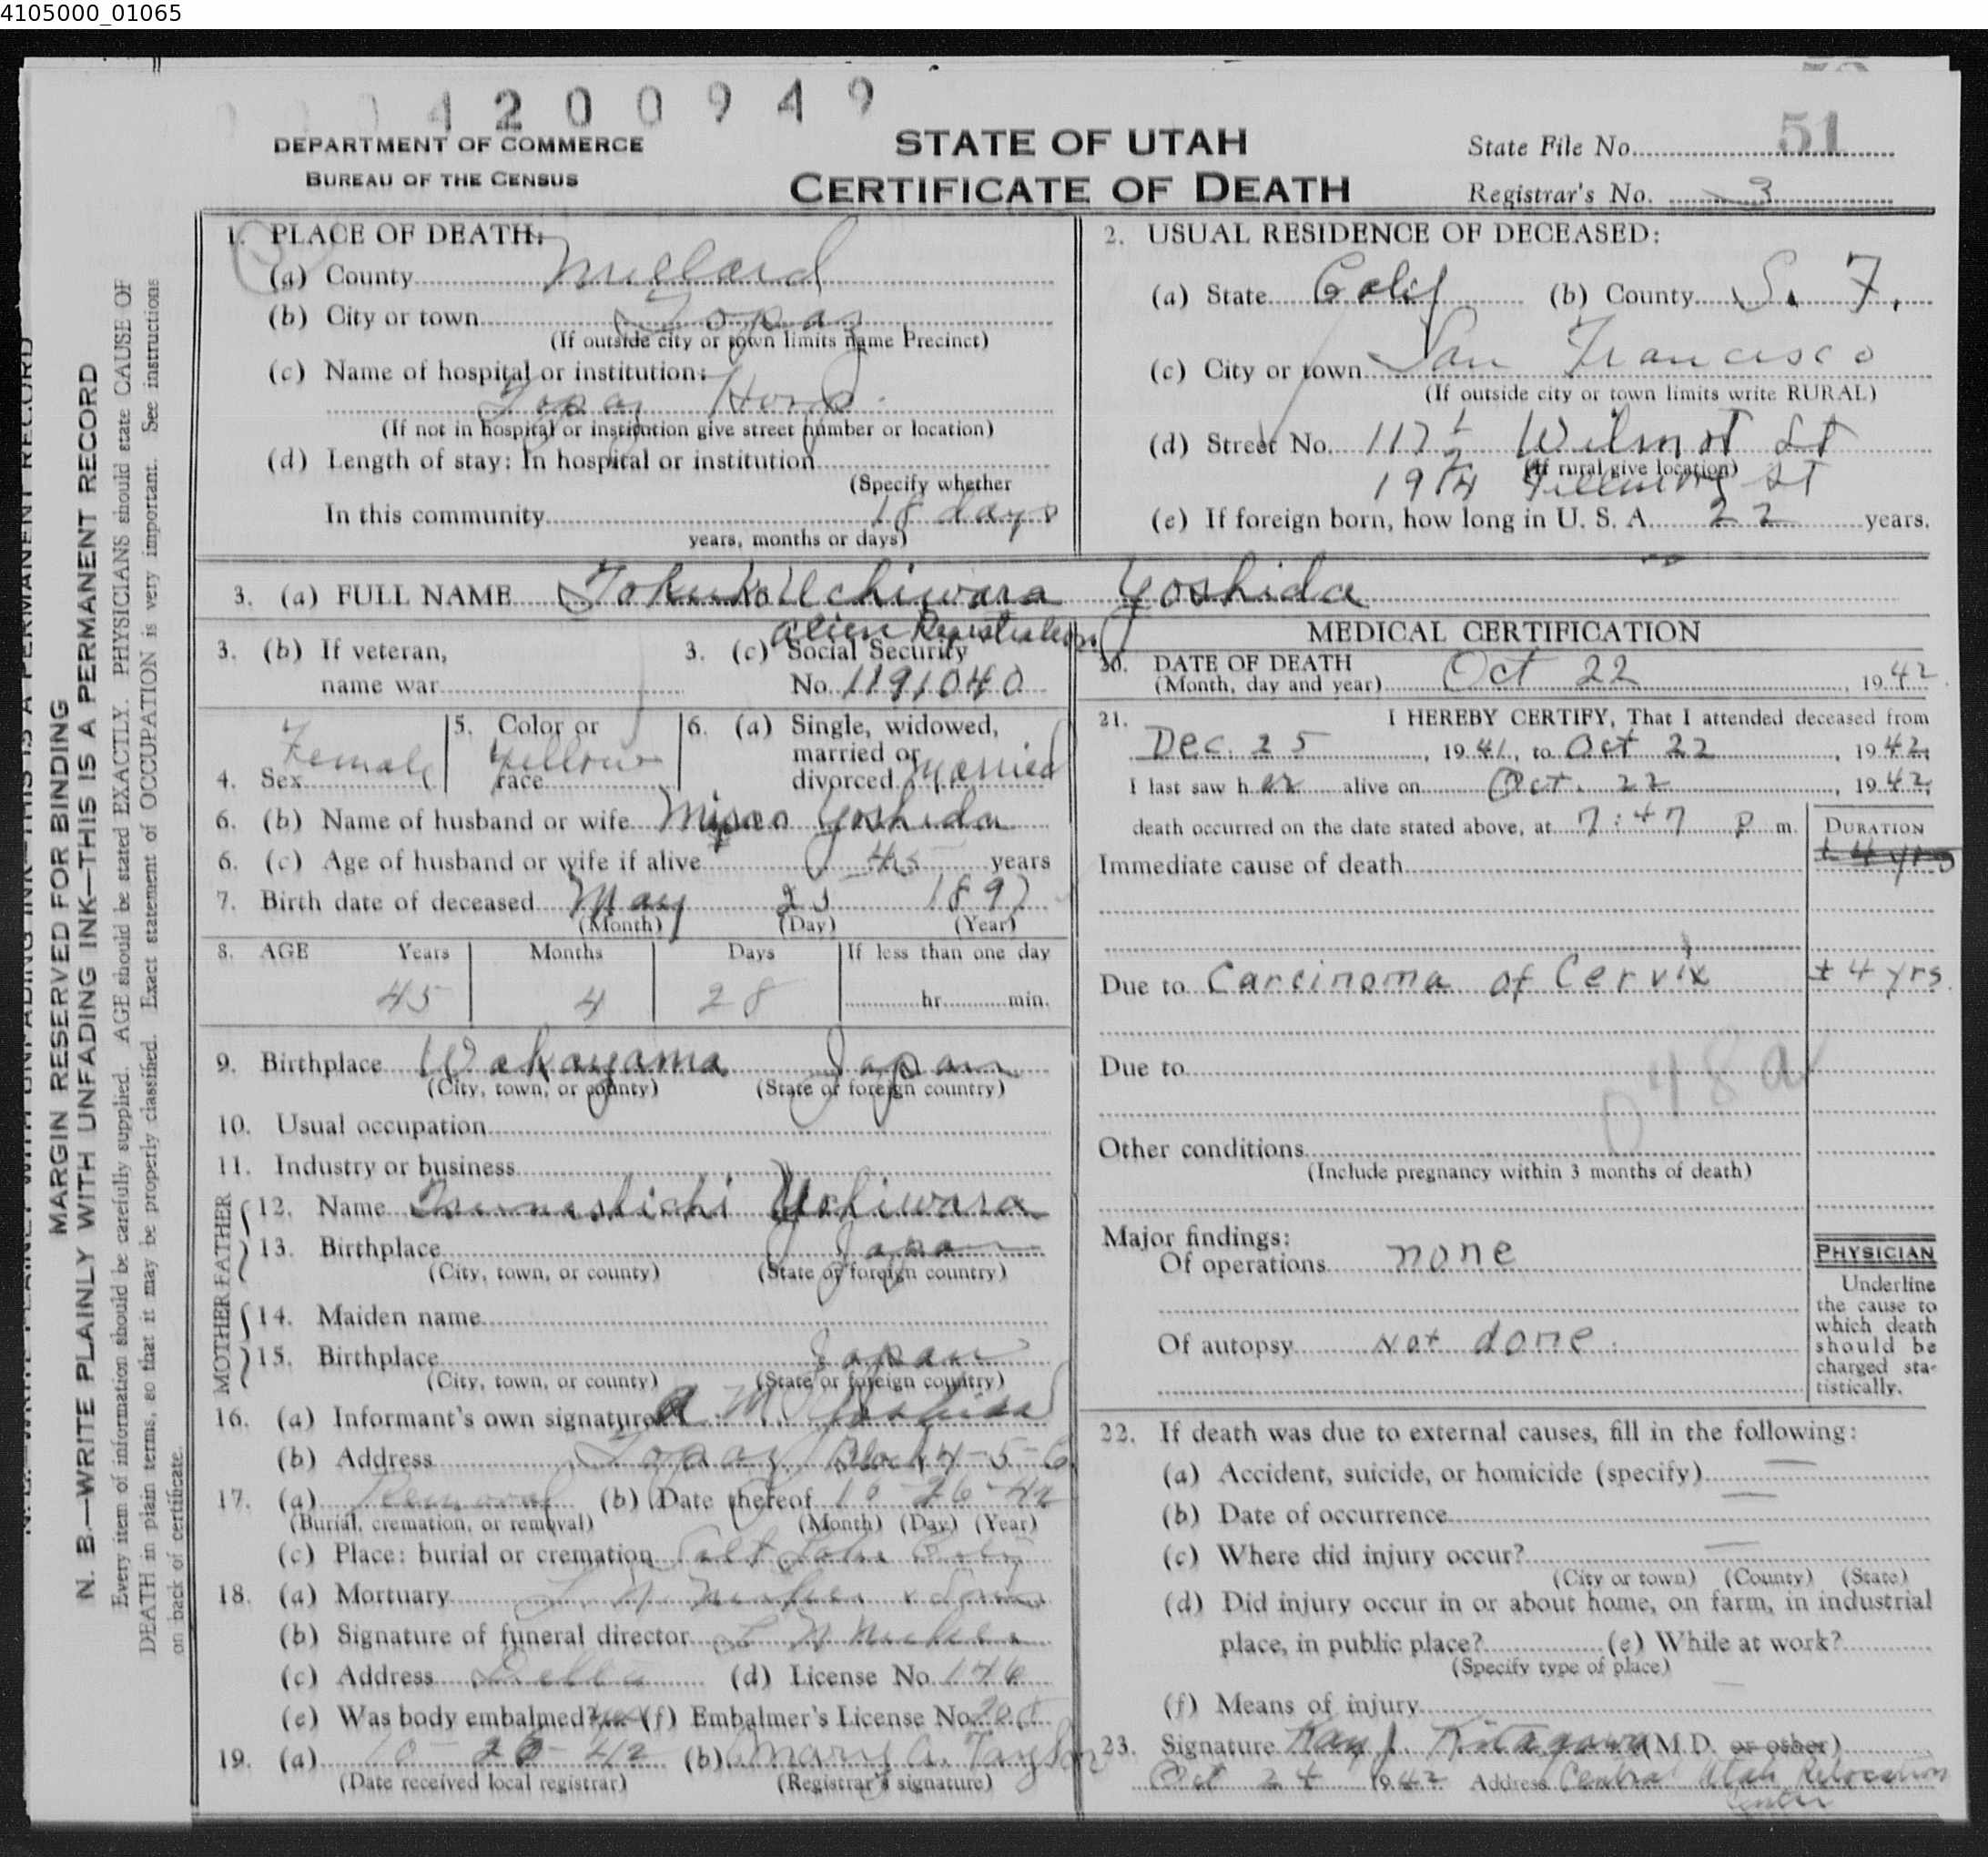 4105000_01065
4200949
DEPARTMENT OF COMMERCE
BUREAU OF THE CENSUS
STATE OF UTAH
CERTIFICATE OF DEATH
State File No. 51
Registrar's No. 3
N. B.—WRITE PLAINLY WITH UNFADING INK—THIS IS A PERMANENT RECORD
MARGIN RESERVED FOR BINDING
N. B.—WRITE PLAINLY WITH UNFADING INK—THIS IS A PERMANENT RECORD
Every item of information should be carefully supplied. AGE should be stated EXACTLY. PHYSICIANS should state CAUSE OF
DEATH in plain terms, so that it may be properly classified. Exact statement of OCCUPATION is very important. See instructions
on back of certificate.
1. PLACE OF DEATH:
(a) County Millard
(b) City or town Topaz
(If outside city or town limits name Precinct)
(c) Name of hospital or institution:
Topaz Hosp.
(If not in hospital or institution give street number or location)
(d) Length of stay: In hospital or institution
(Specify whether
In this community 18 days
years, months or days)
2. USUAL RESIDENCE OF DECEASED:
(a) State Calif (b) County S. F.
(c) City or town San Francisco
(If outside city or town limits write RURAL)
(d) Street No. 117 1/2 Wilmot St
(If rural give location)
1914 Fillmore St
(e) If foreign born, how long in U. S. A. 22 years.
3. (a) FULL NAME Uchiwara Yoshida
3. (b) If veteran,
name war
alien Registration
3. (c) Social Security
No. 1191040
4. Sex Female
5. Color or
race Yellow
6. (a) Single, widowed,
married or
divorced Married
6. (b) Name of husband or wife Yoshida
6. (c) Age of husband or wife if alive 45 years
7. Birth date of deceased May 1897
(Month) (Day) (Year)
8. AGE Years Months Days If less than one day
45 4 28 hr. min.
9. Birthplace Wakayama Japan
(City, town, or county) (State or foreign country)
10. Usual occupation
11. Industry or business
FATHER
12. Name Uchiwara
13. Birthplace Japan
(City, town, or county) (State or foreign country)
MOTHER
14. Maiden name
15. Birthplace Japan
(City, town, or county) (State or foreign country)
16. (a) Informant's own signature M. Yoshida
(b) Address Topaz Block 4-5-6
17. (a) Removal (b) Date thereof 10-26-42
(Burial, cremation, or removal) (Month) (Day) (Year)
(c) Place: burial or cremation Salt Lake City
18. (a) Mortuary & Sons
(b) Signature of funeral director
(c) Address Delta (d) License No. 146
(e) Was body embalmed? yes (f) Embalmer's License No.
19. (a) 10-26-42 (b) Mary A. Taylor
(Date received local registrar) (Registrar's signature)
MEDICAL CERTIFICATION
20. DATE OF DEATH
(Month, day and year) Oct 22, 1942
21. I HEREBY CERTIFY, That I attended deceased from
Dec. 25, 1941, to Oct 22, 1942;
I last saw her alive on Oct. 22, 1942;
death occurred on the date stated above, at 7:47 p m.
DURATION
Immediate cause of death ± 4 yrs
Due to Carcinoma of Cervix ± 4 yrs.
Due to
048a
Other conditions
(Include pregnancy within 3 months of death)
Major findings:
Of operations none
Of autopsy not done.
PHYSICIAN
Underline
the cause to
which death
should be
charged sta-
tistically.
22. If death was due to external causes, fill in the following:
(a) Accident, suicide, or homicide (specify) —
(b) Date of occurrence —
(c) Where did injury occur? —
(City or town) (County) (State)
(d) Did injury occur in or about home, on farm, in industrial
place, in public place? (e) While at work?
(Specify type of place)
(f) Means of injury —
23. Signature Kay J. Kitagawa (M.D. or other)
Oct 24 1942 Address Central Utah Relocation
Center